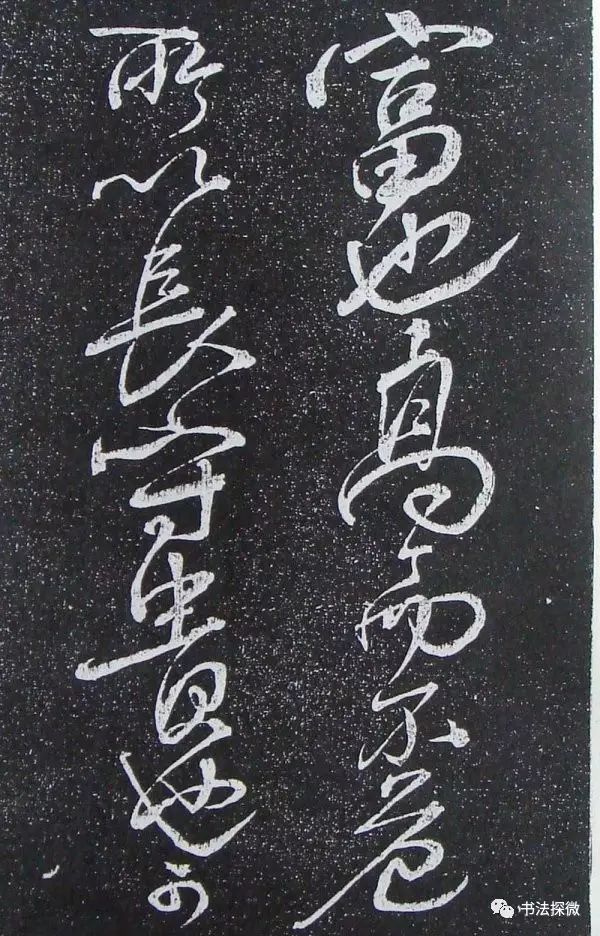 富也高而不危
所以長守貴也可
书法探微